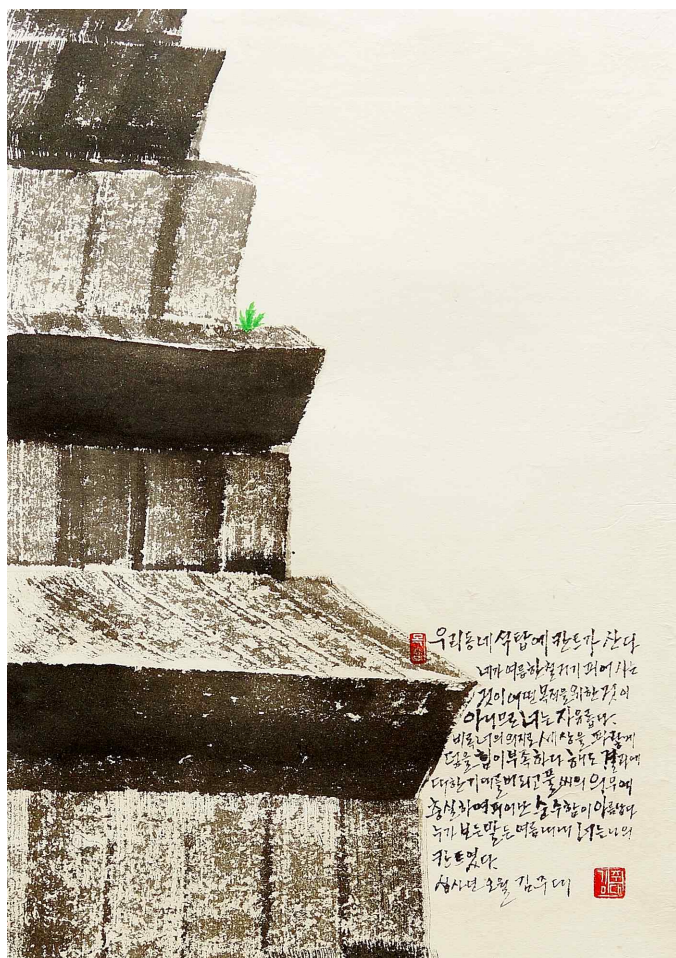 우리동네 석탑에 칸트가 산다
네가 여름 한철 거기 피어 사는
것이 어떤 목적을 위한 것이
아니므로 너는 자유롭다.
비록 너의 의지로 세상을 파랗게
덮을 힘이 부족하다 해도 결과에
대한 기대를 버리고 풀씨의 의무에
충실하여 피어난 순수함이 아름답다
누가 보든 말든 여름내내 너는 나의
칸트였다.
십사년 오월 김주대